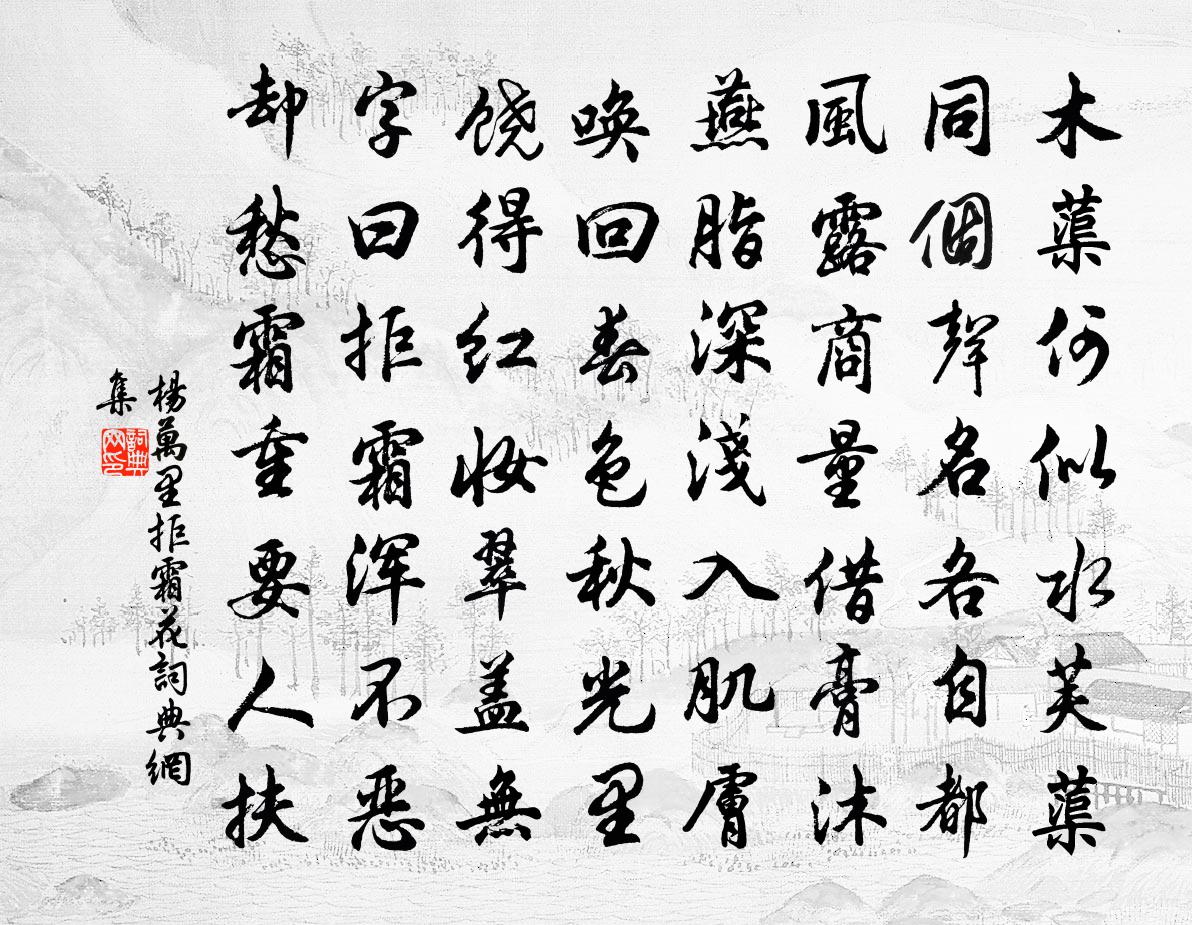 木蕖何似水芙蕖
同個聲名各自都
風露商量借膏沐
燕脂深淺入肌膚
唤回春色秋光里
饶得红妝翠盖無
字曰拒霜浑不恶
却愁霜重要人扶
楊萬里拒霜花詞典網
集
詞典網印